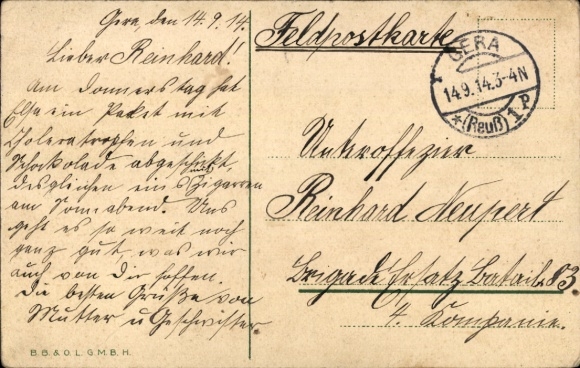 Gera, den 14.9.14.
Lieber Reinhard!
Am Donnerstag hat
Elsa ein Paket mit
Choleratropfen und
Schokolade abgeschickt,
desgleichen eins mit Zigarren
am Sonnabend. Uns
geht es so weit noch
ganz gut, was wir
auch von dir hoffen.
Die besten Grüße von
Mutter u Geschwister
B.B.& O.L.G.M.B.H.
Feldpostkarte
GERA
14.9.14.3-4N
*(Reuß) 1P
Unteroffizier
Reinhard Neupert
Brigade Ersatz Batail. 83.
4. Kompanie.